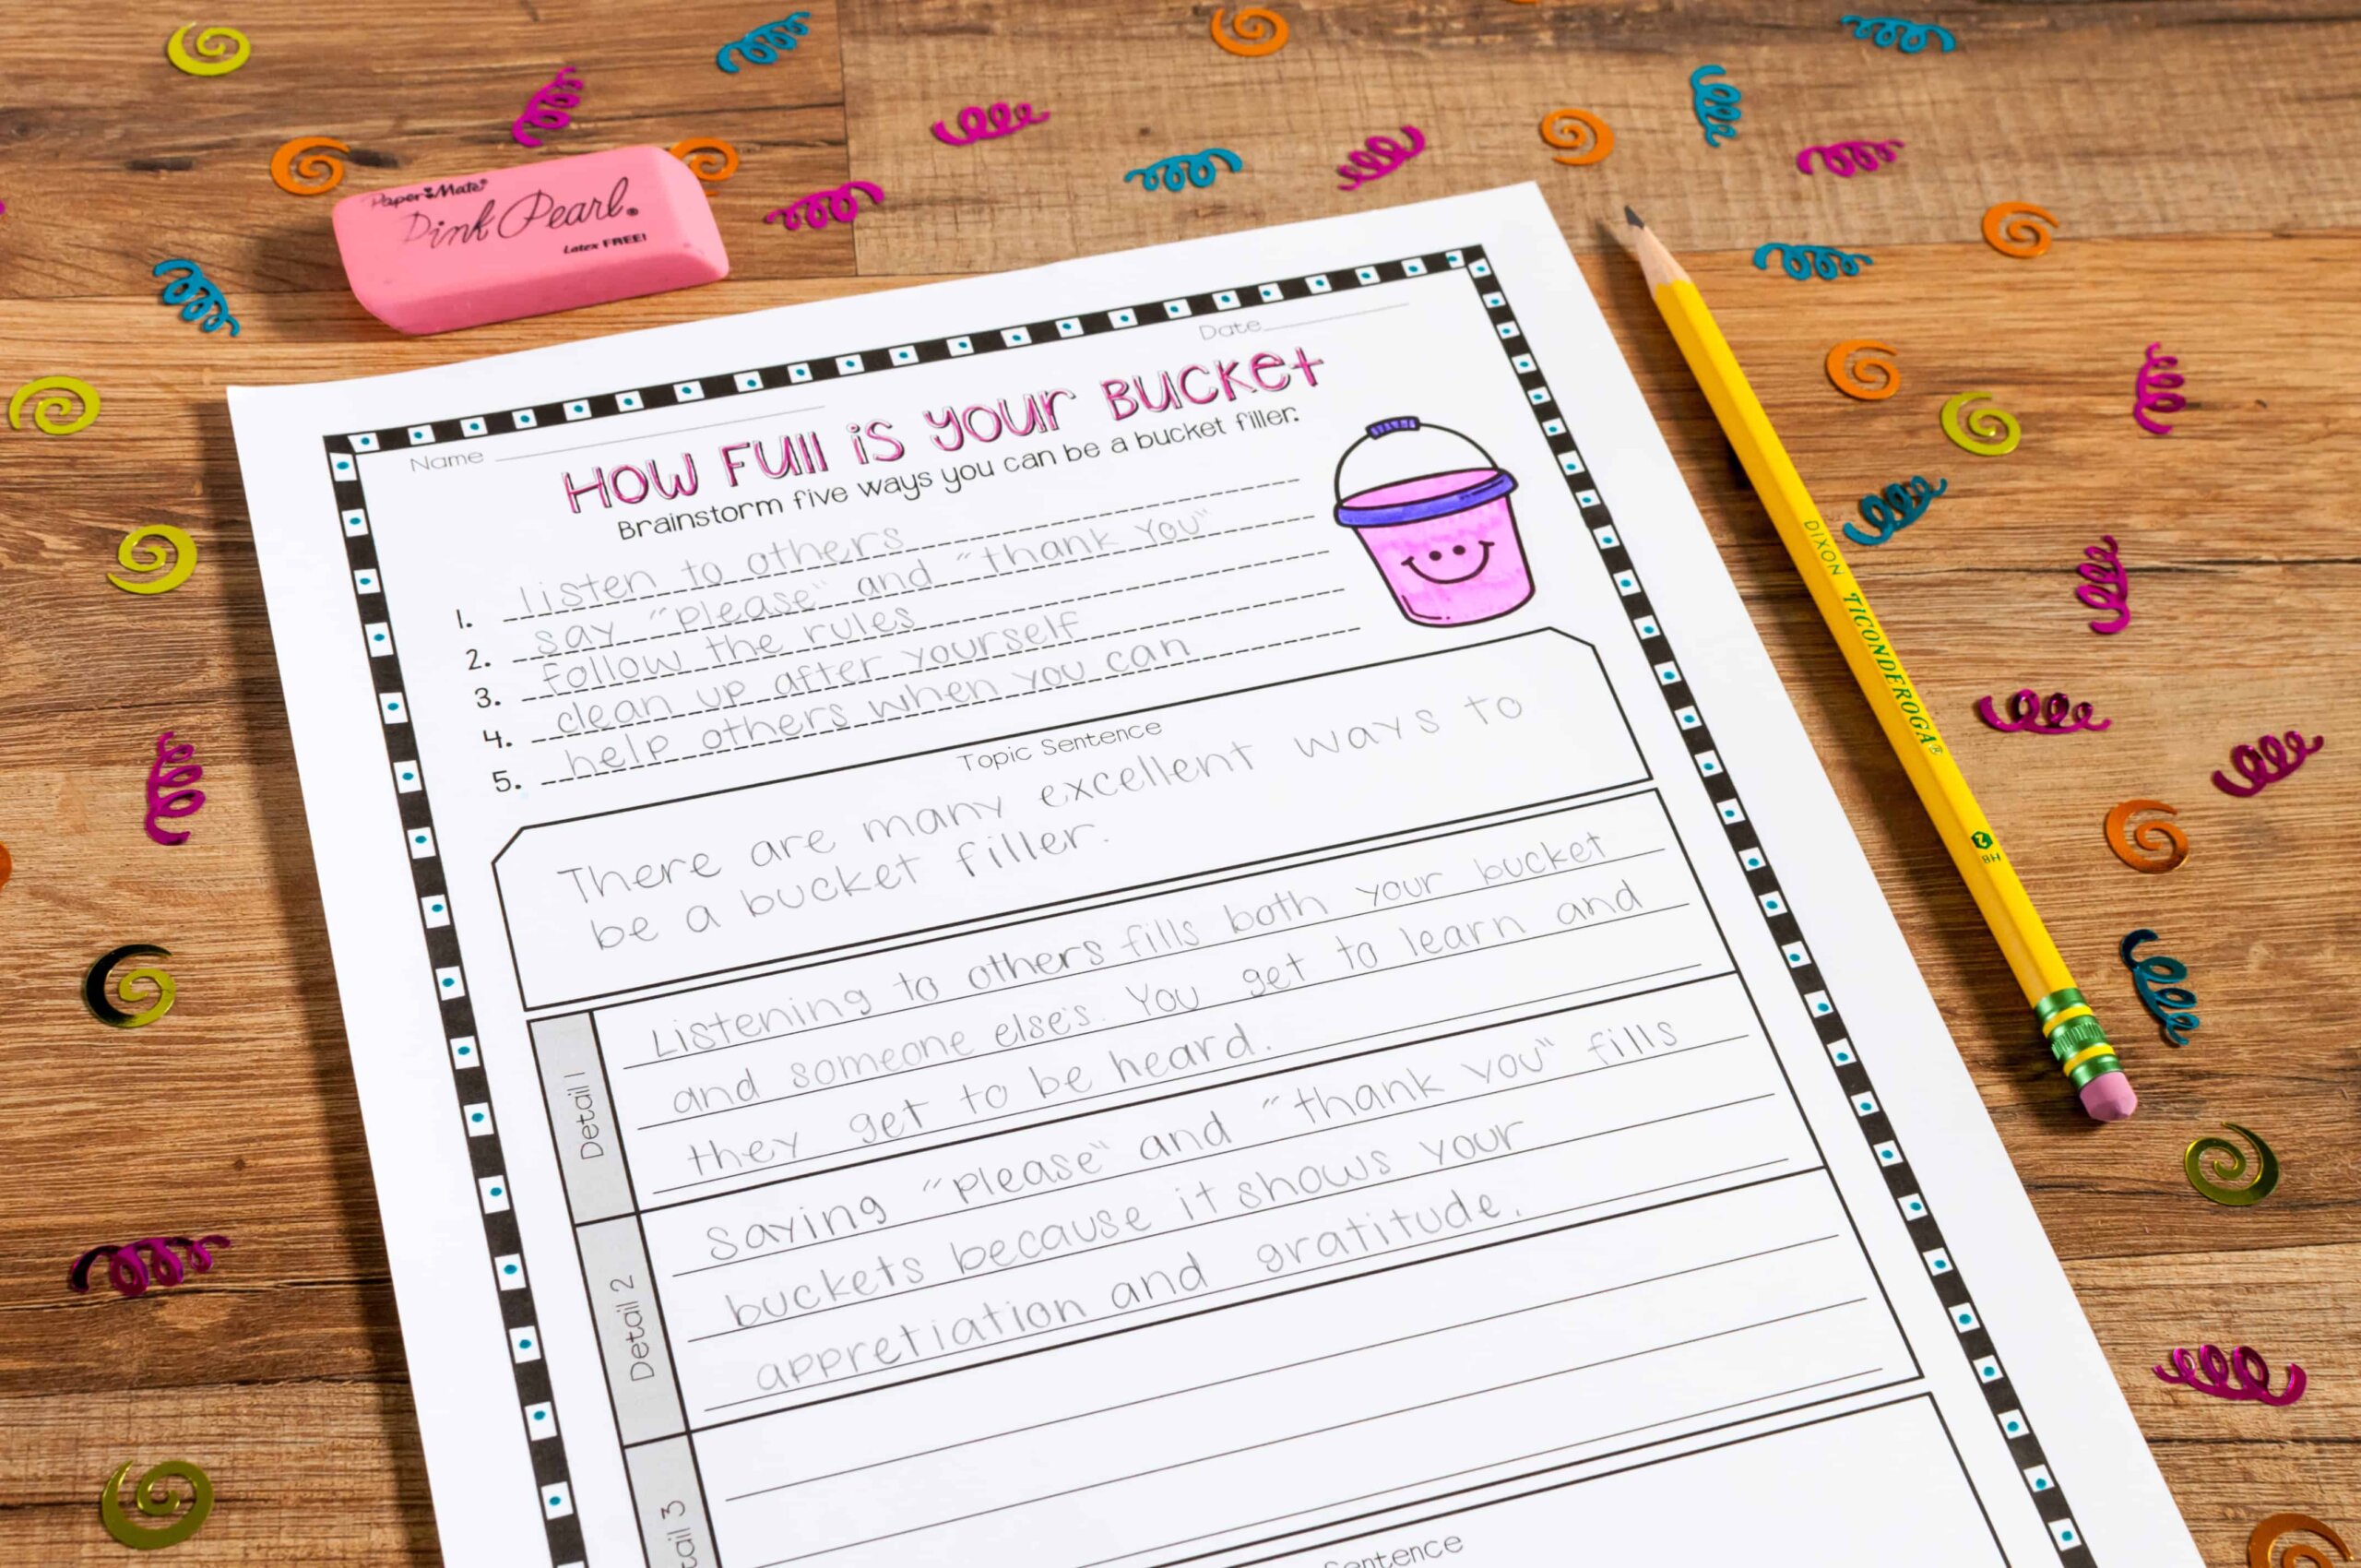 Paper Mate®
Pink Pearl®
Latex FREE!
Date
Name
HOW FUll iS yOUr BUCKet
Brainstorm five ways you can be a bucket filler.
1. listen to others
2. say "please" and "thank you"
3. follow the rules
4. clean up after yourself
5. help others when you can
Topic Sentence
There are many excellent ways to
be a bucket filler.
Detail 1
Listening to others fills both your bucket
and someone else's. You get to learn and
they get to be heard.
Detail 2
Saying "please" and "thank you" fills
buckets because it shows your
appretiation and gratitude.
tail 3
entence
DIXON TICONDEROGA®
2 HB